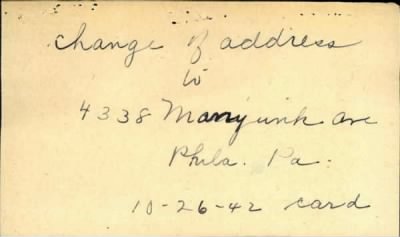 change of address
to
4338 Manyunk Ave
Phila. Pa.
10-26-42 card